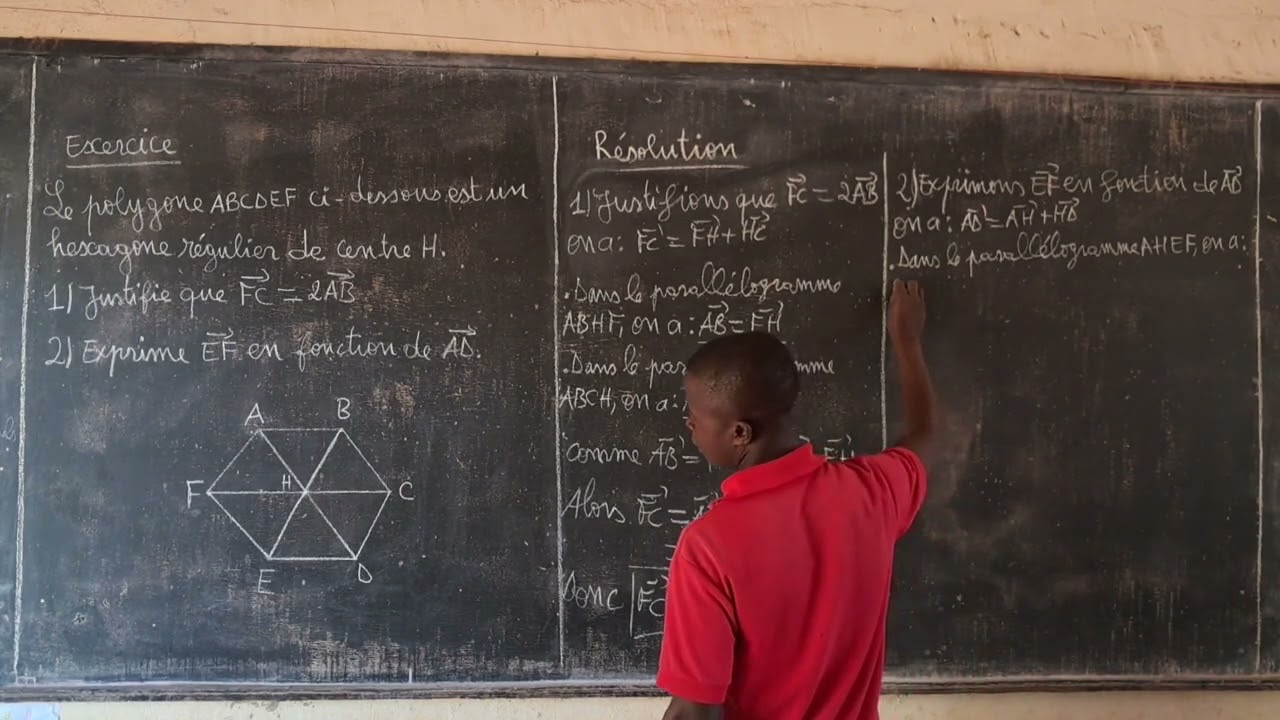 Exercice
Le polygone ABCDEF ci-dessous est un
hexagone régulier de centre H.
1) Justifie que F⃗C⃗ = 2A⃗B⃗
2) Exprime E⃗F⃗ en fonction de A⃗D⃗.
A B
F H C
E D
Résolution
1) Justifions que F⃗C⃗ = 2A⃗B⃗
on a : F⃗C⃗ = F⃗H⃗ + H⃗C⃗
. Dans le parallélogramme
ABHF, on a : A⃗B⃗ = F⃗H⃗
. Dans le
ABCH, on a :
Comme A⃗B⃗ =
Alors F⃗C⃗ =
Donc F⃗C⃗
2) Exprimons E⃗F⃗ en fonction de A⃗D⃗
on a : A⃗D⃗ = A⃗H⃗ + H⃗D⃗
. Dans le parallélogramme AHEF, on a :